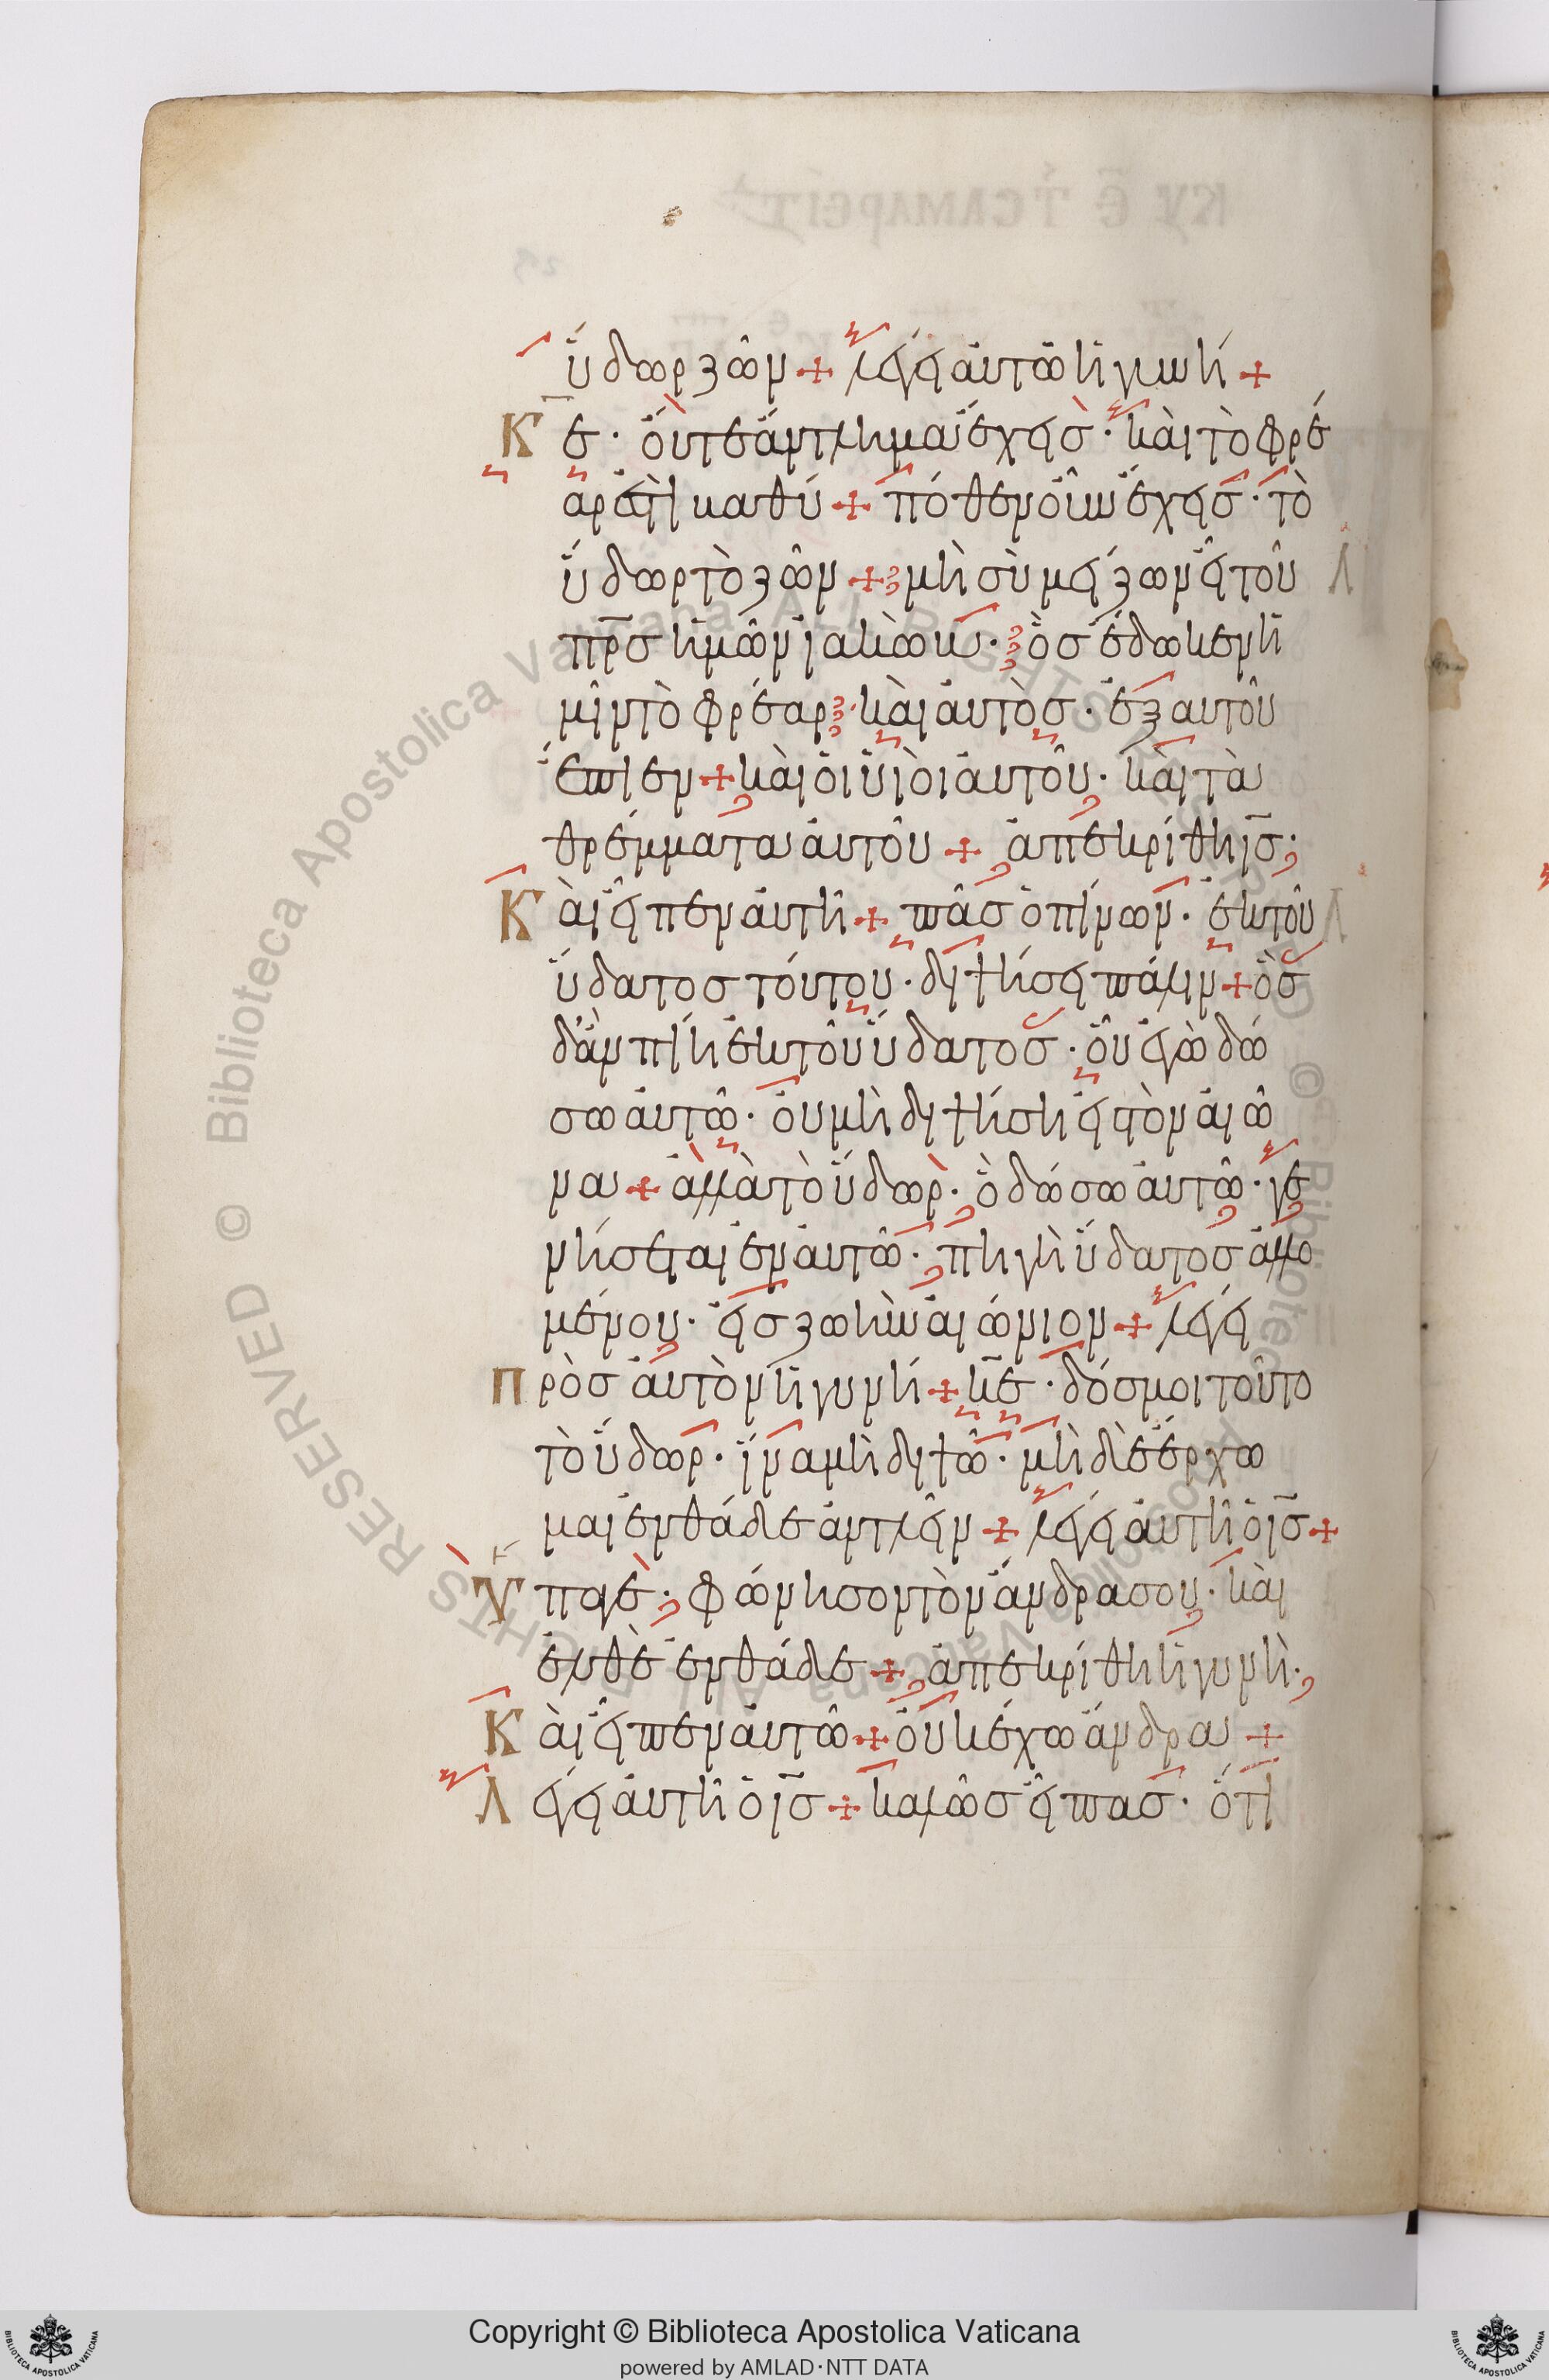 ὕδωρ ζῶν + λέγει αὐτῶ ἡ γυνή +
Κ̅ε · οὔτε ἄντλημα ἔχεισ · καὶ τὸ φρέ
αρ ἐστὶ βαθύ + πόθεν οὖν ἔχεισ · τὸ
ὕδωρ τὸ ζῶν + μὴ σὺ μείζων εἶ τοῦ
π̅ρ̅σ ἡμῶν ἰακώβ · ὃσ ἔδωκεν ἡ
μῖν τὸ φρέαρ · καὶ αὐτὸσ · ἐξ αὐτοῦ
ἔπιεν + καὶ οἱ υἱοὶ αὐτοῦ · καὶ τὰ
θρέμματα αὐτοῦ + ἀπεκρίθη ι̅σ ·
Καὶ εἶπεν αὐτῆ + πᾶσ ὁ πίνων · ἐκ τοῦ
ὕδατοσ τούτου · διψήσει πάλιν + ὃσ
δ' ἂν πίη ἐκ τοῦ ὕδατοσ · οὗ ἐγὼ δώ
σω αὐτῶ · οὐ μὴ διψήση εἰσ τὸν αἰῶ
να + ἀλλὰ τὸ ὕδωρ · ὃ δώσω αὐτῶ · γε
νήσεται ἐν αὐτῶ · πηγὴ ὕδατοσ ἁλλο
μένου · εἰσ ζωὴν αἰώνιον + λέγει
Πρὸσ αὐτὸν ἡ γυνή + κ̅ε · δόσ μοι τοῦτο
τὸ ὕδωρ · ἵνα μὴ διψῶ · μὴ δὲ ἔρχω
μαι ἐνθάδε ἀντλεῖν + λέγει αὐτῆ ὁ ι̅σ +
Ὕπαγε · φώνησον τὸν ἄνδρα σου · καὶ
ἐλθὲ ἐνθάδε + ἀπεκρίθη ἡ γυνὴ ·
Καὶ εἶπεν αὐτῶ + οὐκ ἔχω ἄνδρα +
Λέγει αὐτῆ ὁ ι̅σ + καλῶσ εἶπασ · ὅτι
Copyright © Biblioteca Apostolica Vaticana
powered by AMLAD·NTT DATA